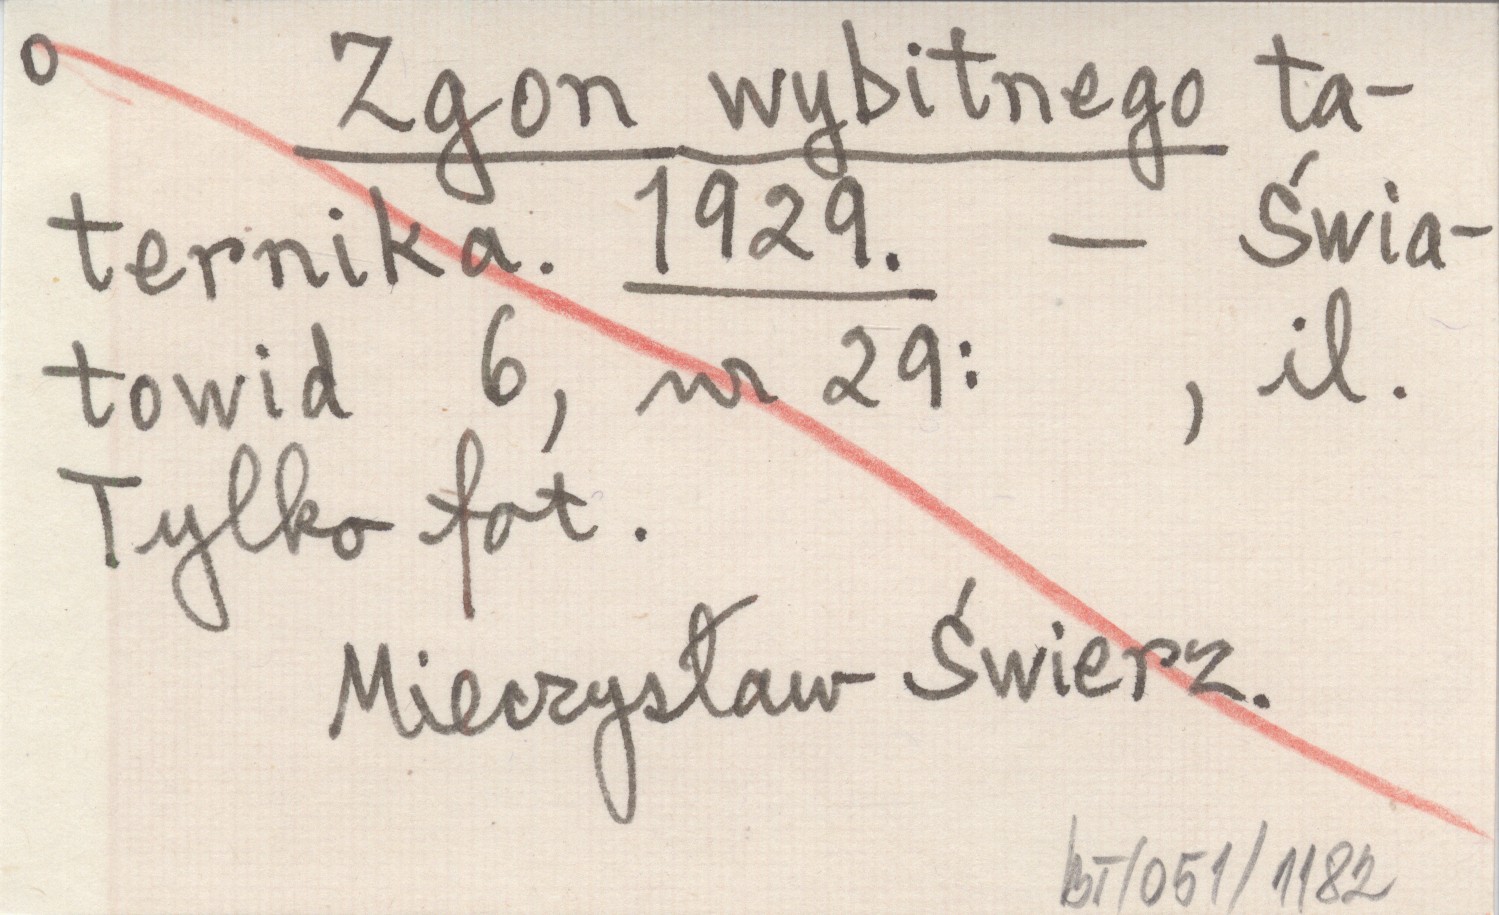 o Zgon wybitnego ta-
ternika. 1929. — Świa-
towid 6, nr 29: , il.
Tylko fot.
Mieczysław Świerz.
BT/051/1182